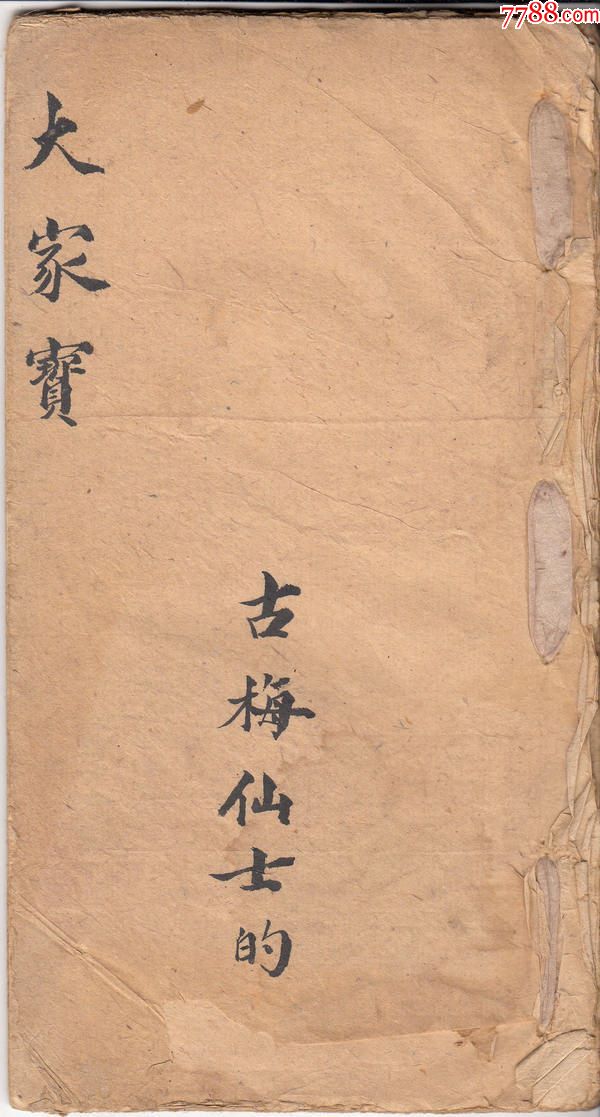 7788.com
大家寳
古梅仙士的